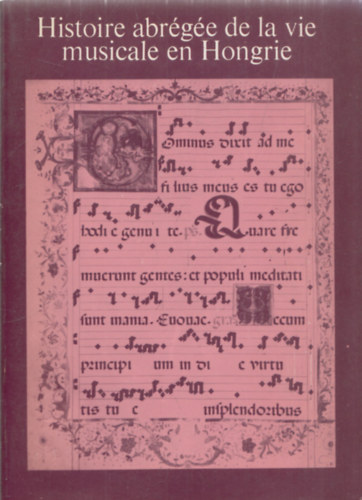 Histoire abrégée de la vie
musicale en Hongrie
Dominus dixit ad me
filius meus es tu ego
hodi e genu i te. ps. Quare fre
muerunt gentes: et populi meditati
sunt inania. Euouae. gra Tecum
principi um in di e virtu
tis tu e in splendoribus